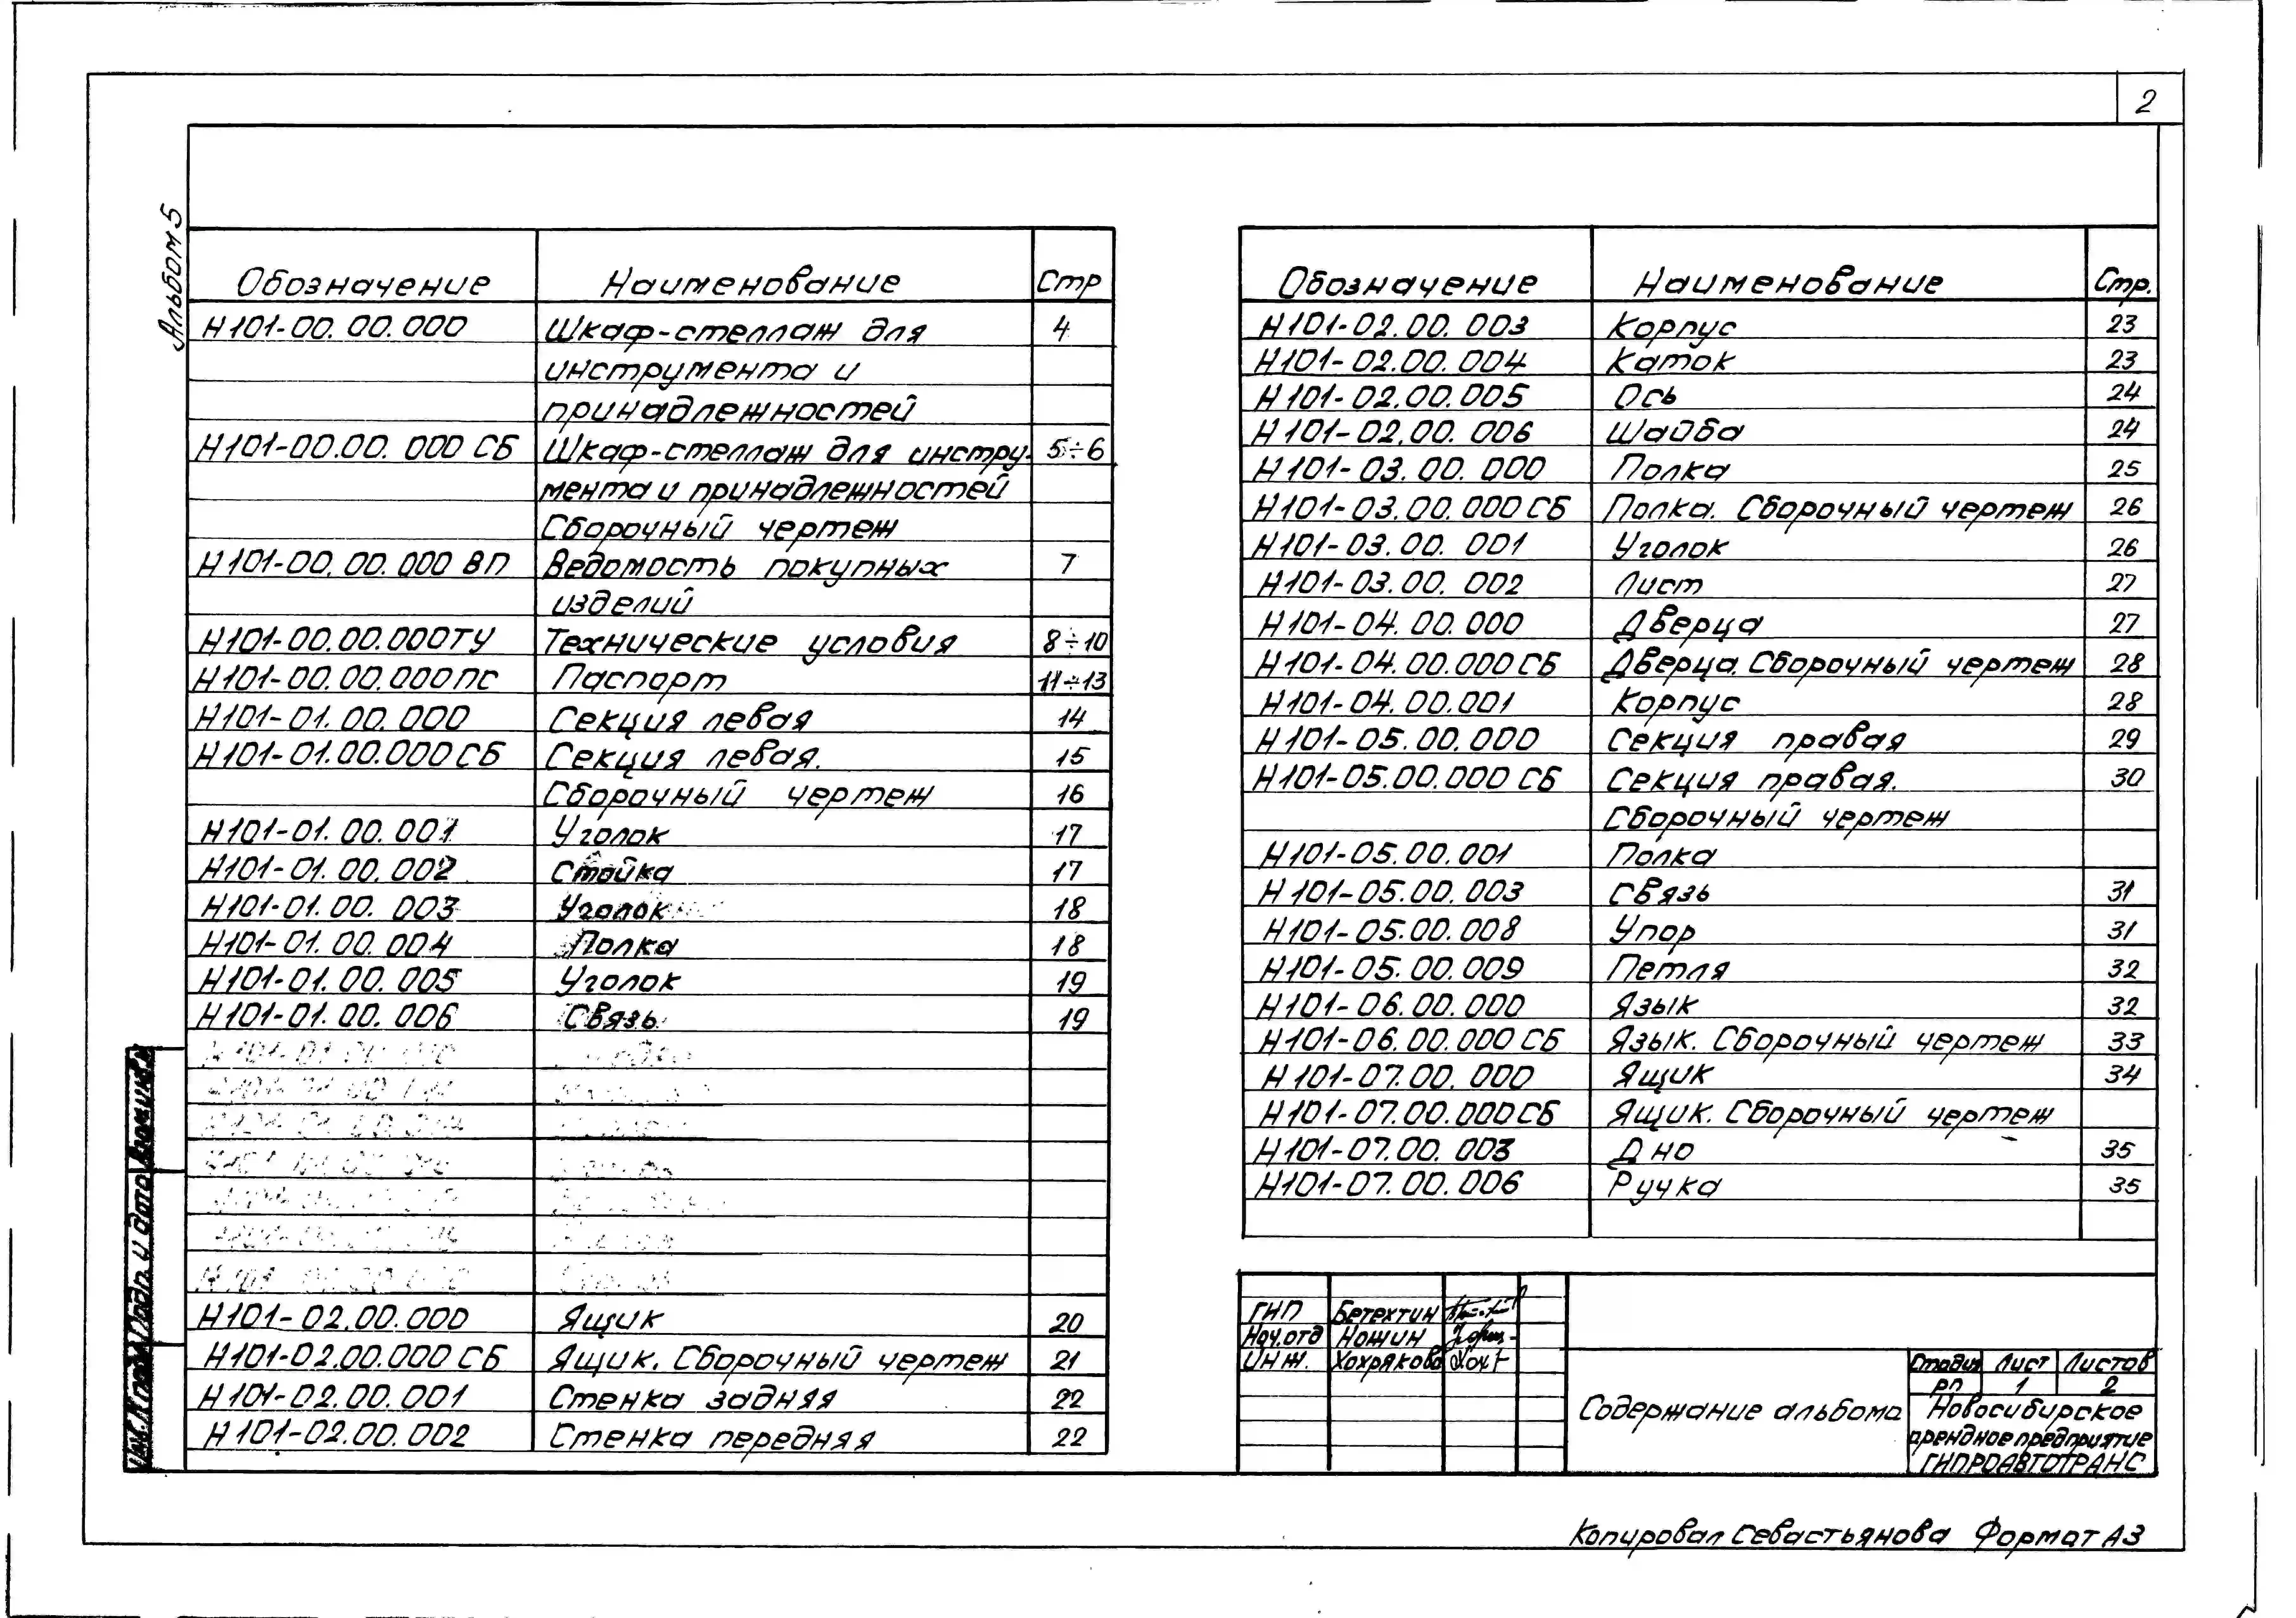 2
Альбом 5
Обозначение Наименование Стр
Н101-00.00.000 Шкаф-стеллаж для 4
инструмента и
принадлежностей
Н101-00.00.000 СБ Шкаф-стеллаж для инстру- 5÷6
мента и принадлежностей
Сборочный чертеж
Н101-00.00.000 ВП Ведомость покупных 7
изделий
Н101-00.00.000ТУ Технические условия 8÷10
Н101-00.00.000ПС Паспорт 11÷13
Н101-01.00.000 Секция левая 14
Н101-01.00.000СБ Секция левая. 15
Сборочный чертеж 16
Н101-01.00.001 Уголок 17
Н101-01.00.002 Стойка 17
Н101-01.00.003 Уголок 18
Н101-01.00.004 Полка 18
Н101-01.00.005 Уголок 19
Н101-01.00.006 Связь 19
Н101-02.00.000 Ящик 20
Н101-02.00.000 СБ Ящик. Сборочный чертеж 21
Н101-02.00.001 Стенка задняя 22
Н101-02.00.002 Стенка передняя 22
Обозначение Наименование Стр.
Н101-02.00.003 Корпус 23
Н101-02.00.004 Каток 23
Н101-02.00.005 Ось 24
Н101-02.00.006 Шайба 24
Н101-03.00.000 Полка 25
Н101-03.00.000СБ Полка. Сборочный чертеж 26
Н101-03.00.001 Уголок 26
Н101-03.00.002 Лист 27
Н101-04.00.000 Дверца 27
Н101-04.00.000СБ Дверца. Сборочный чертеж 28
Н101-04.00.001 Корпус 28
Н101-05.00.000 Секция правая 29
Н101-05.00.000 СБ Секция правая. 30
Сборочный чертеж
Н101-05.00.001 Полка
Н101-05.00.003 Связь 31
Н101-05.00.008 Упор 31
Н101-05.00.009 Петля 32
Н101-06.00.000 Язык 32
Н101-06.00.000 СБ Язык. Сборочный чертеж 33
Н101-07.00.000 Ящик 34
Н101-07.00.000СБ Ящик. Сборочный чертеж
Н101-07.00.003 Дно 35
Н101-07.00.006 Ручка 35
ГИП Бетехтин
Нач.отд Ношин
Инж. Хохрякова
Содержание альбома
Стадия Лист Листов
РП 1 2
Новосибирское
арендное предприятие
ГИПРОАВТОТРАНС
Подп. и дата
Копировал Севастьянова Формат А3